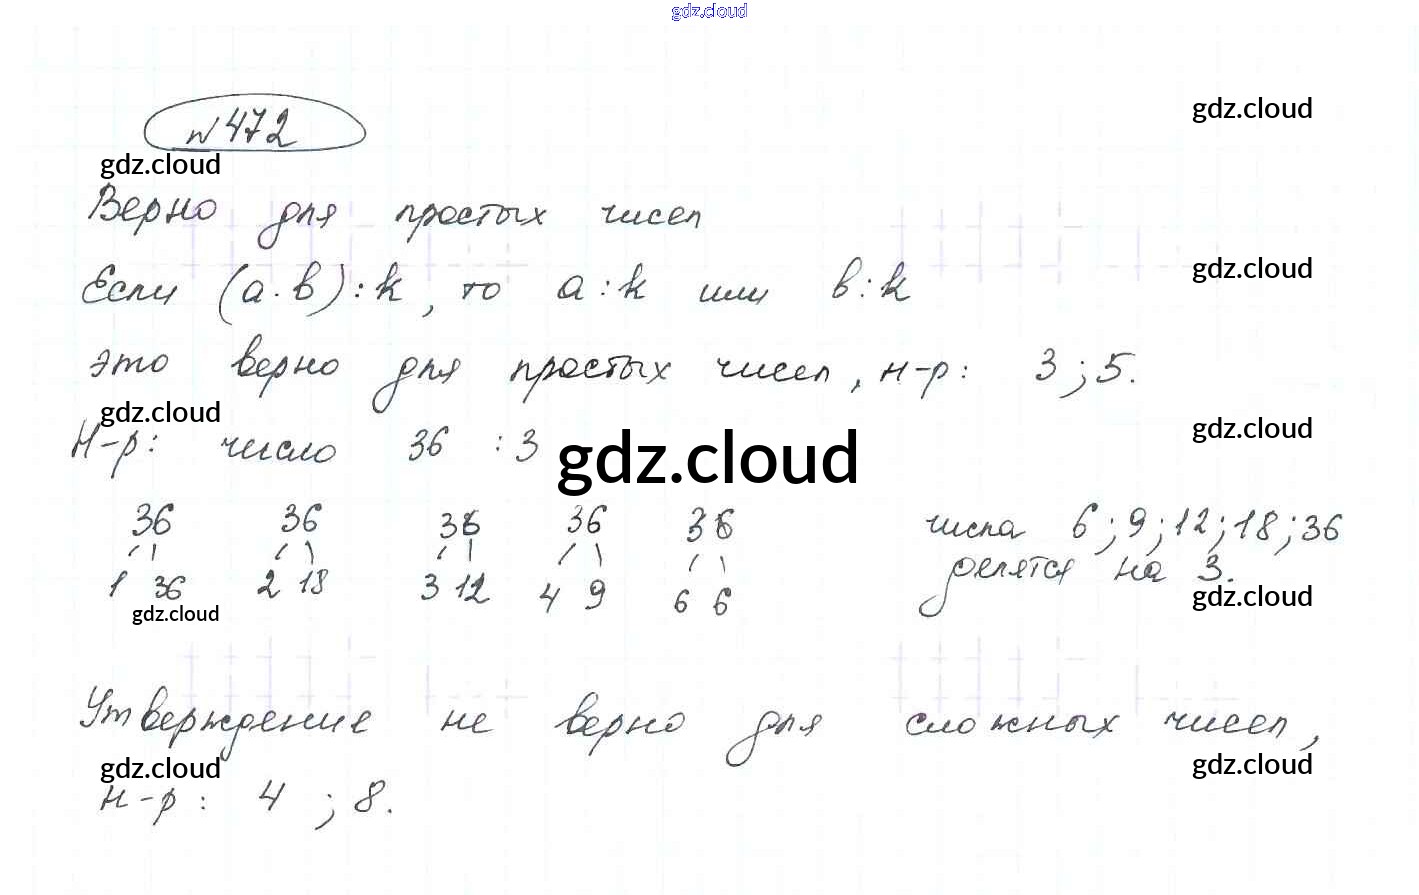 gdz.cloud
№ 472
gdz.cloud
gdz.cloud
Верно для простых чисел
gdz.cloud
Если (a·b):k, то a:k или b:k
это верно для простых чисел, н-р: 3;5.
gdz.cloud
gdz.cloud
Н-р: число 36 :3
gdz.cloud
36 36 36 36 36
1 36 2 18 3 12 4 9 6 6
числа 6;9;12;18;36
делятся на 3.
gdz.cloud
gdz.cloud
Утверждение не верно для сложных чисел,
gdz.cloud
gdz.cloud
н-р: 4 ;8.